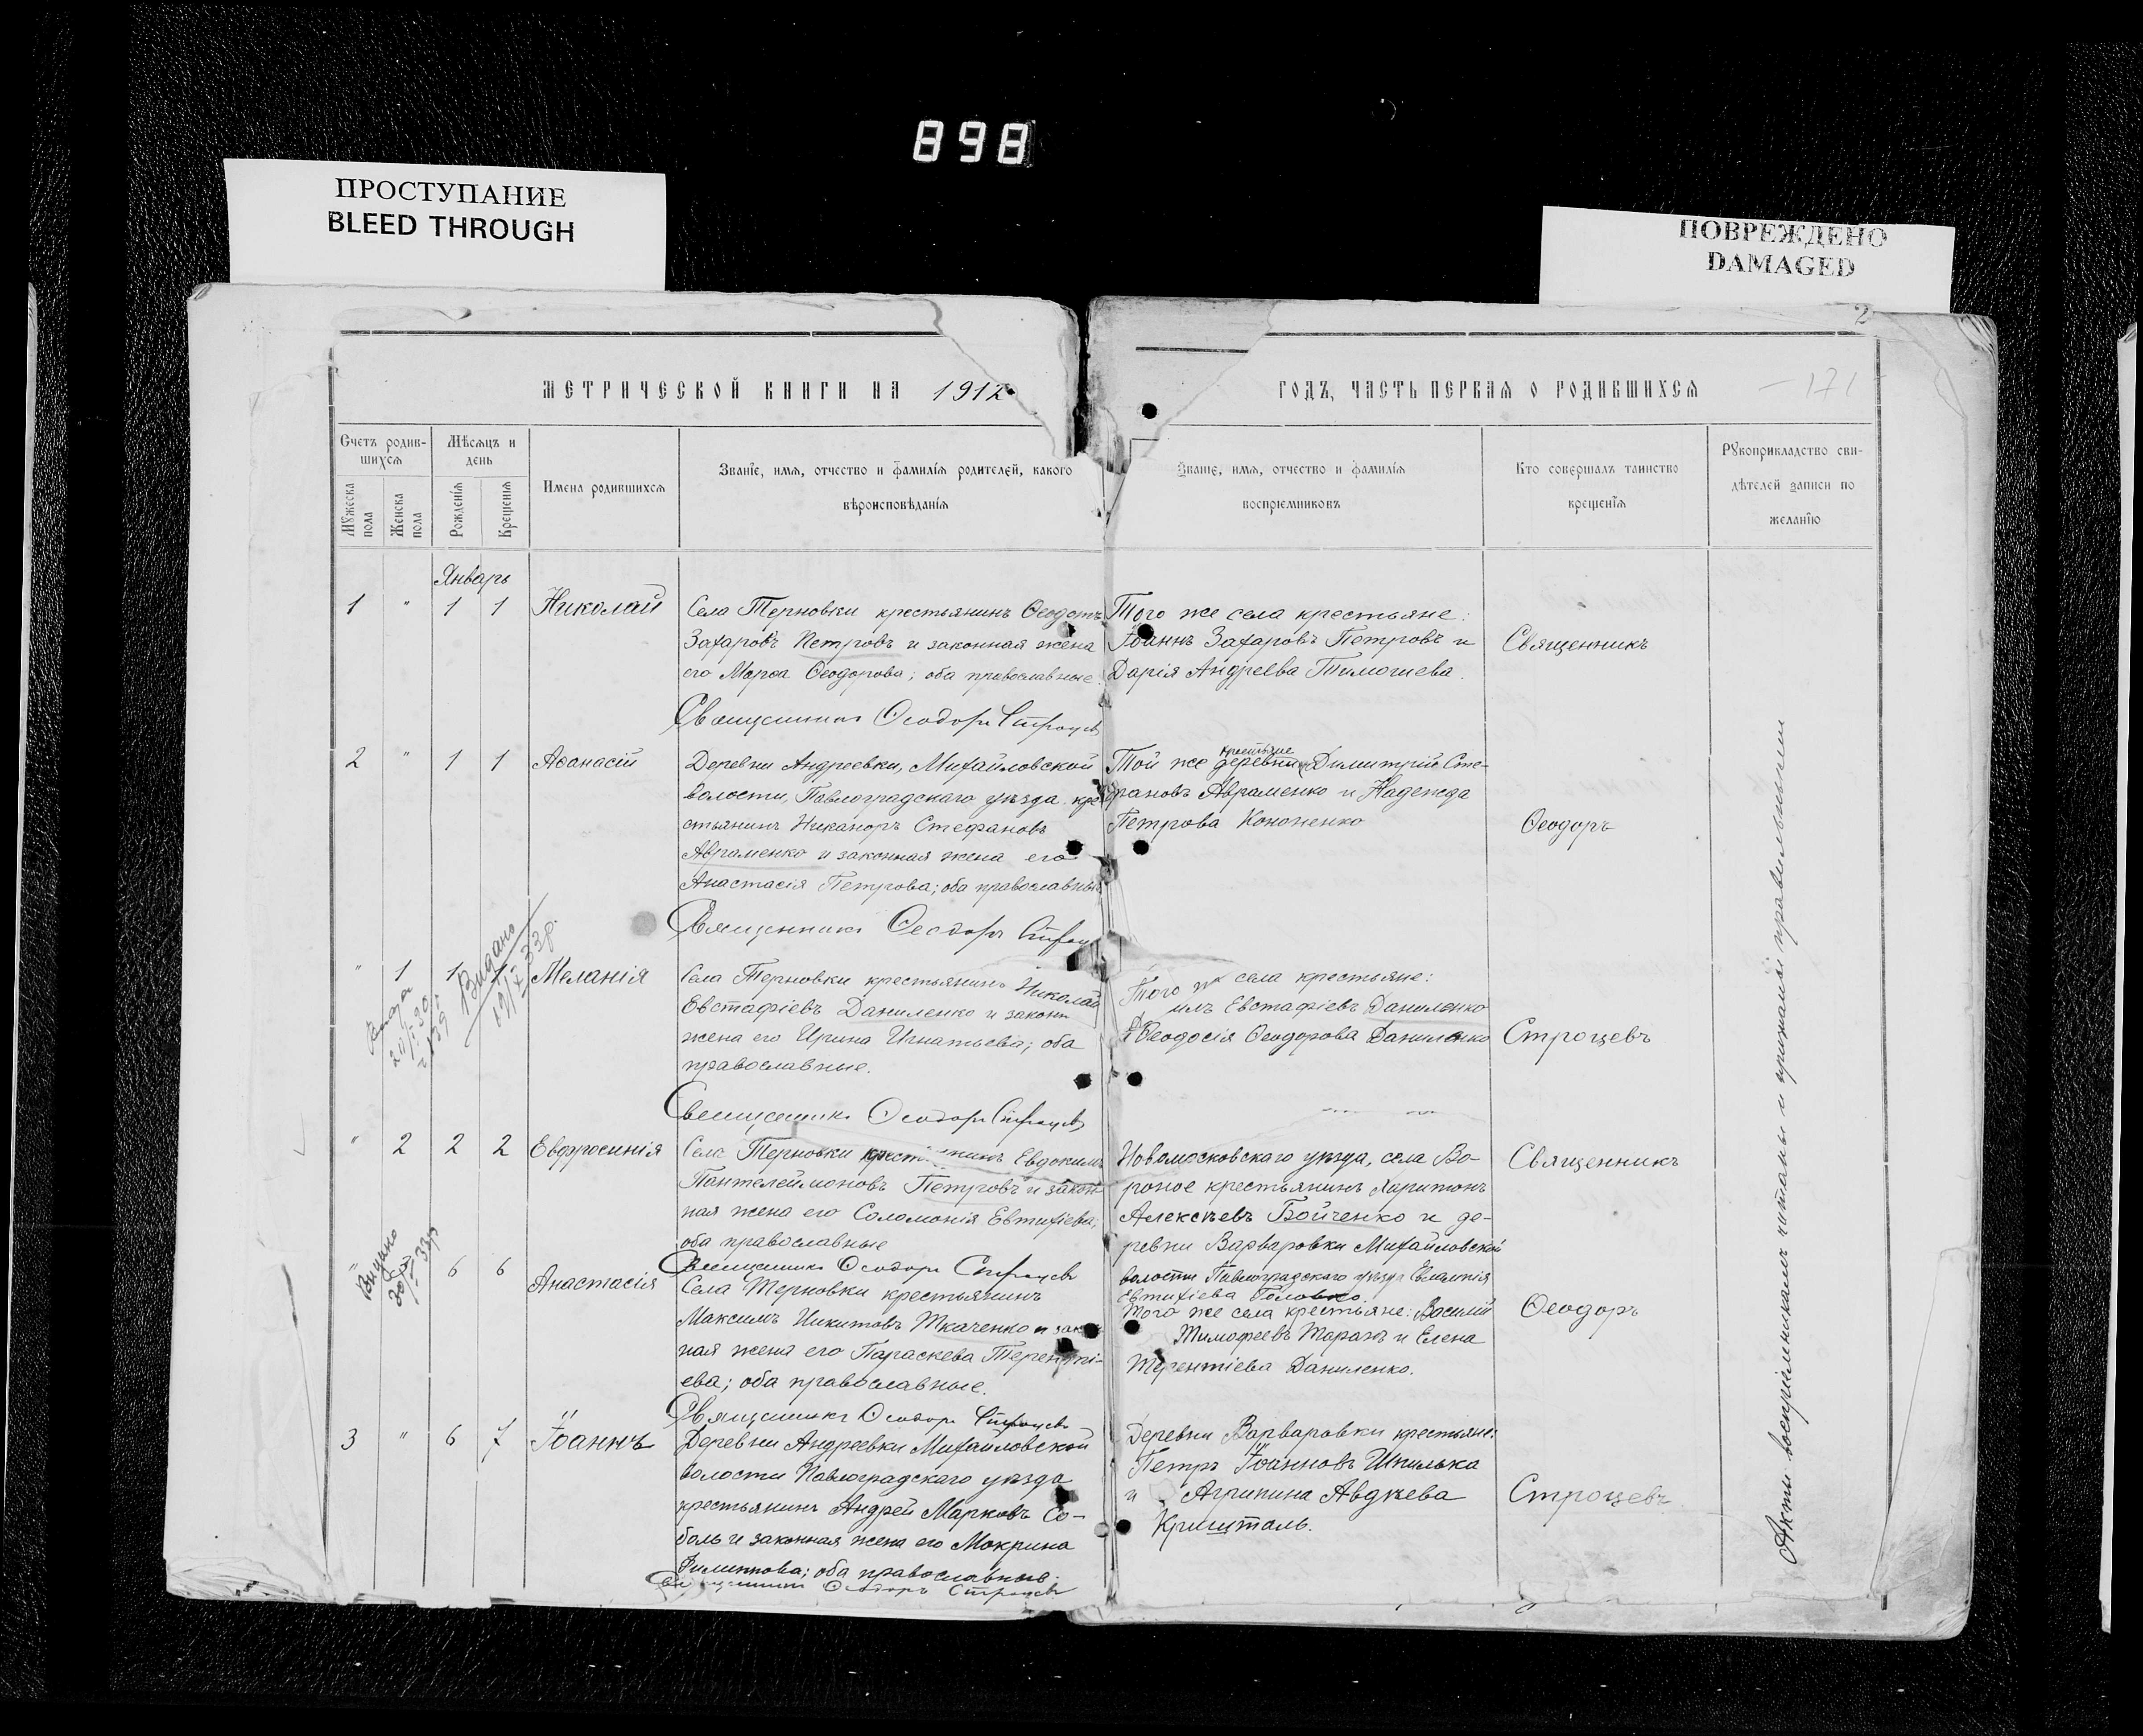 898
ПРОСТУПАНИЕ
BLEED THROUGH
ПОВРЕЖДЕНО
DAMAGED
2
171
МЕТРИЧЕСКОЙ КНИГИ НА 1912
ГОДЪ, ЧАСТЬ ПЕРВАЯ О РОДИВШИХСЯ
Счетъ родив-
шихся
Мужеска пола
Женска пола
Мѣсяцъ и
день
Рожденія
Крещенія
Имена родившихся
Званіе, имя, отчество и фамилія родителей, какого
вѣроисповѣданія
Званіе, имя, отчество и фамилія
воспріемниковъ
Кто совершалъ таинство
крещенія
Рукоприкладство сви-
дѣтелей записи по
желанію
Январь
1 " 1 1 Николай
Села Терновки крестьянинъ Ѳеодотъ
Захаровъ Петровъ и законная жена
его Марѳа Ѳеодорова; оба православные.
Священникъ Ѳеодоръ Строцевъ
Того же села крестьяне:
Іоаннъ Захаровъ Петровъ и
Дарія Андреева Тимошева.
Священникъ
2 " 1 1 Аѳанасій
Деревни Андреевки, Михайловской
волости, Павлоградскаго уѣзда кре-
стьянинъ Никаноръ Стефановъ
Авраменко и законная жена его
Анастасія Петрова; оба православные
Священникъ Ѳеодоръ
крестьяне
Той же деревни Димитрій Сте-
фановъ Авраменко и Надежда
Петрова Кононенко
Ѳеодоръ
" 1 1 1 Меланія
Видано
19/X 33р.
Села Терновки крестьянинъ Николай
Евстафіевъ Даниленко и законн
жена его Ирина Игнатьева; оба
православные.
Священникъ Ѳеодоръ Строцевъ
Того же села крестьяне:
илъ Евстафіевъ Даниленко
Ѳеодосія Ѳеодорова Даниленко
Строцевъ
" 2 2 2 Евфросинія
Села Терновки крестьянинъ Евдокимъ
Пантелеймоновъ Петровъ и закон-
ная жена его Соломонія Евтихіева;
оба православные
Священникъ Ѳеодоръ Строцевъ
Новомосковскаго уѣзда, села Во-
роное крестьянинъ Харитонъ
Алексѣевъ Бойченко и де-
ревни Варваровки Михайловской
волости Павлоградскаго уѣзда Евлампія
Евтихіева Головко.
Священникъ
" 6 6 Анастасія
Села Терновки крестьянинъ
Максимъ Никитовъ Ткаченко и закон
ная жена его Параскева Терентьі-
ева; оба православные.
Священникъ Ѳеодоръ Строцевъ
Того же села крестьяне: Василій
Тимофеевъ Таранъ и Елена
Терентіева Даниленко.
Ѳеодоръ
3 " 6 7 Іоаннъ
Деревни Андреевки Михайловской
волости Павлоградскаго уѣзда
крестьянинъ Андрей Марковъ Со-
боль и законная жена его Макрина
Филиппова; оба православные.
Священникъ Ѳеодоръ Строцевъ
Деревни Варваровки крестьяне:
Петръ Іоанновъ Шпилька
и Агрипина Авдѣева
Кришталь.
Строцевъ
Акты воспріемникамъ читаны и признаны правильными